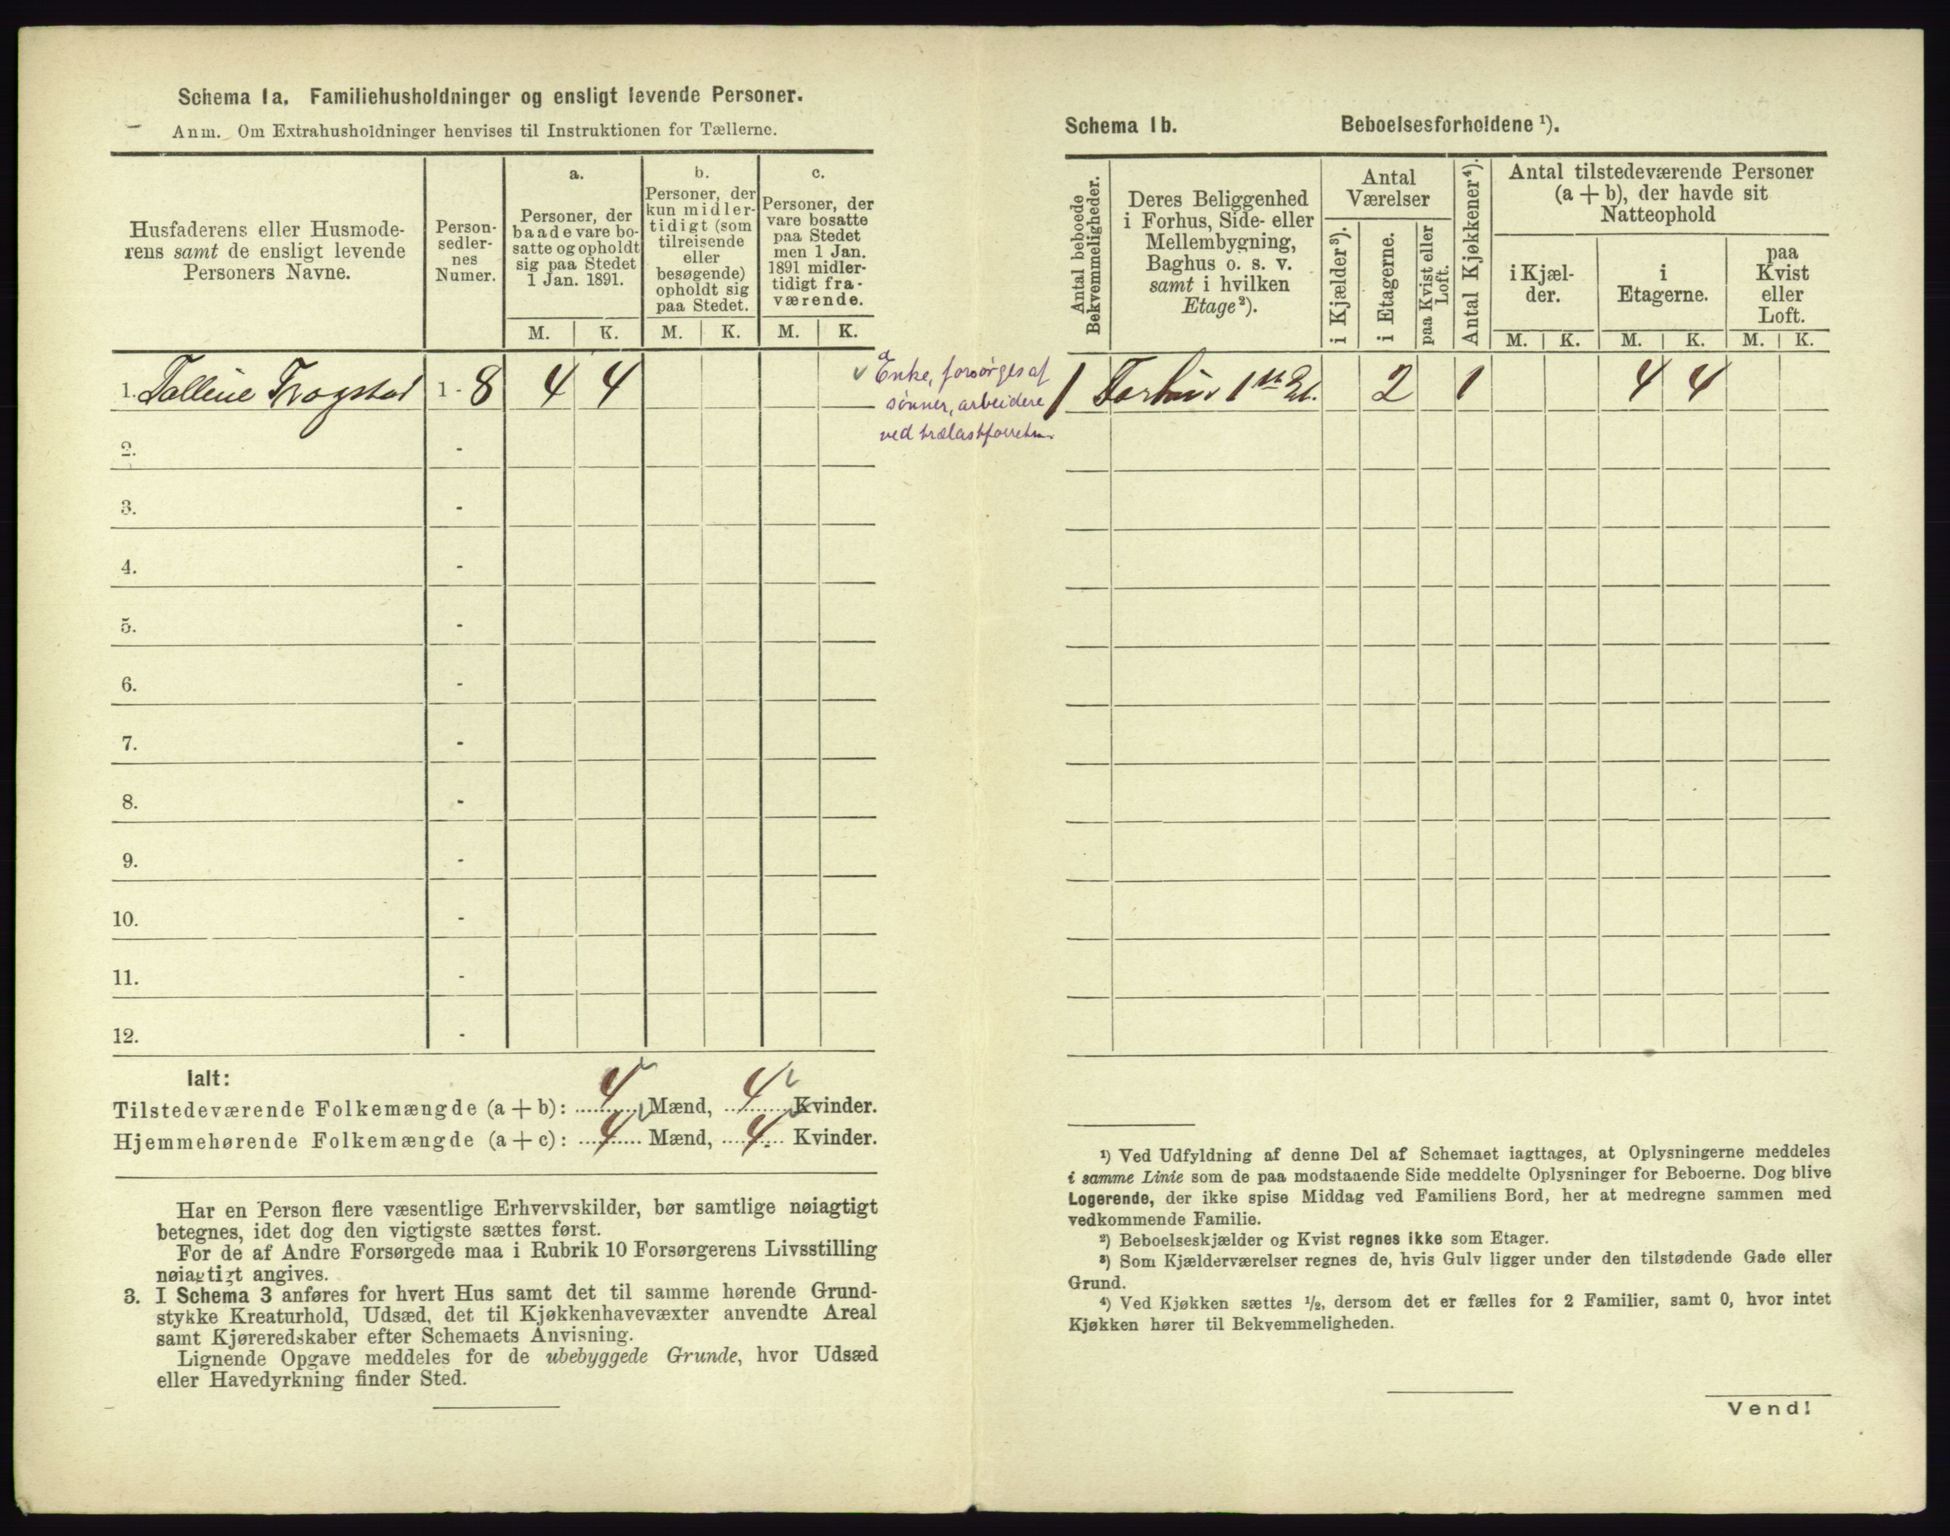 Schema 1a. Familiehusholdninger og ensligt levende Personer.
Anm. Om Extrahusholdninger henvises til Instruktionen for Tællerne.
Husfaderens eller Husmode-
rens samt de ensligt levende
Personers Navne.
Person-
sedler-
nes
Numer.
a.
Personer, der
baade vare bo-
satte og opholdt
sig paa Stedet
1 Jan. 1891.
b.
Personer, der
kun midler-
tidigt (som
tilreisende
eller
besøgende)
opholdt sig
paa Stedet.
c.
Personer, der
vare bosatte
paa Stedet
men 1 Jan.
1891 midler-
tidigt fra-
værende.
M. K. M. K. M. K.
1. Tolline Trogstad 1 - 8 4 4
Enke, forsørges af
sønner, arbeidere
ved trælastforretn.
2. -
3. -
4. -
5. -
6. -
7. -
8. -
9. -
10. -
11. -
12. -
Ialt:
Tilstedeværende Folkemængde (a + b): 4 Mænd, 4 Kvinder.
Hjemmehørende Folkemængde (a + c): 4 Mænd, 4 Kvinder.
Har en Person flere væsentlige Erhvervskilder, bør samtlige nøiagtigt
betegnes, idet dog den vigtigste sættes først.
For de af Andre Forsørgede maa i Rubrik 10 Forsørgerens Livsstilling
nøiagtigt angives.
3. I Schema 3 anføres for hvert Hus samt det til samme hørende Grund-
stykke Kreaturhold, Udsæd, det til Kjøkkenhavevæxter anvendte Areal
samt Kjøreredskaber efter Schemaets Anvisning.
Lignende Opgave meddeles for de ubebyggede Grunde, hvor Udsæd
eller Havedyrkning finder Sted.
Schema 1b. Beboelsesforholdene ¹).
Antal beboede
Bekvemmeligheder.
Deres Beliggenhed
i Forhus, Side- eller
Mellembygning,
Baghus o. s. v.
samt i hvilken
Etage²).
Antal
Værelser
i Kjælder³).
i Etagerne.
paa Kvist eller
Loft.
Antal Kjøkkener⁴).
Antal tilstedeværende Personer
(a + b), der havde sit
Natteophold
i Kjæl-
der.
i
Etagerne.
paa
Kvist
eller
Loft.
M. K. M. K. M. K.
1 Forhus 1ste Et. 2 1 4 4
¹) Ved Udfyldning af denne Del af Schemaet iagttages, at Oplysningerne meddeles
i samme Linie som de paa modstaaende Side meddelte Oplysninger for Beboerne. Dog blive
Logerende, der ikke spise Middag ved Familiens Bord, her at medregne sammen med
vedkommende Familie.
²) Beboelseskjælder og Kvist regnes ikke som Etager.
³) Som Kjælderværelser regnes de, hvis Gulv ligger under den tilstødende Gade eller
Grund.
⁴) Ved Kjøkken sættes ½, dersom det er fælles for 2 Familier, samt 0, hvor intet
Kjøkken hører til Bekvemmeligheden.
Vend!